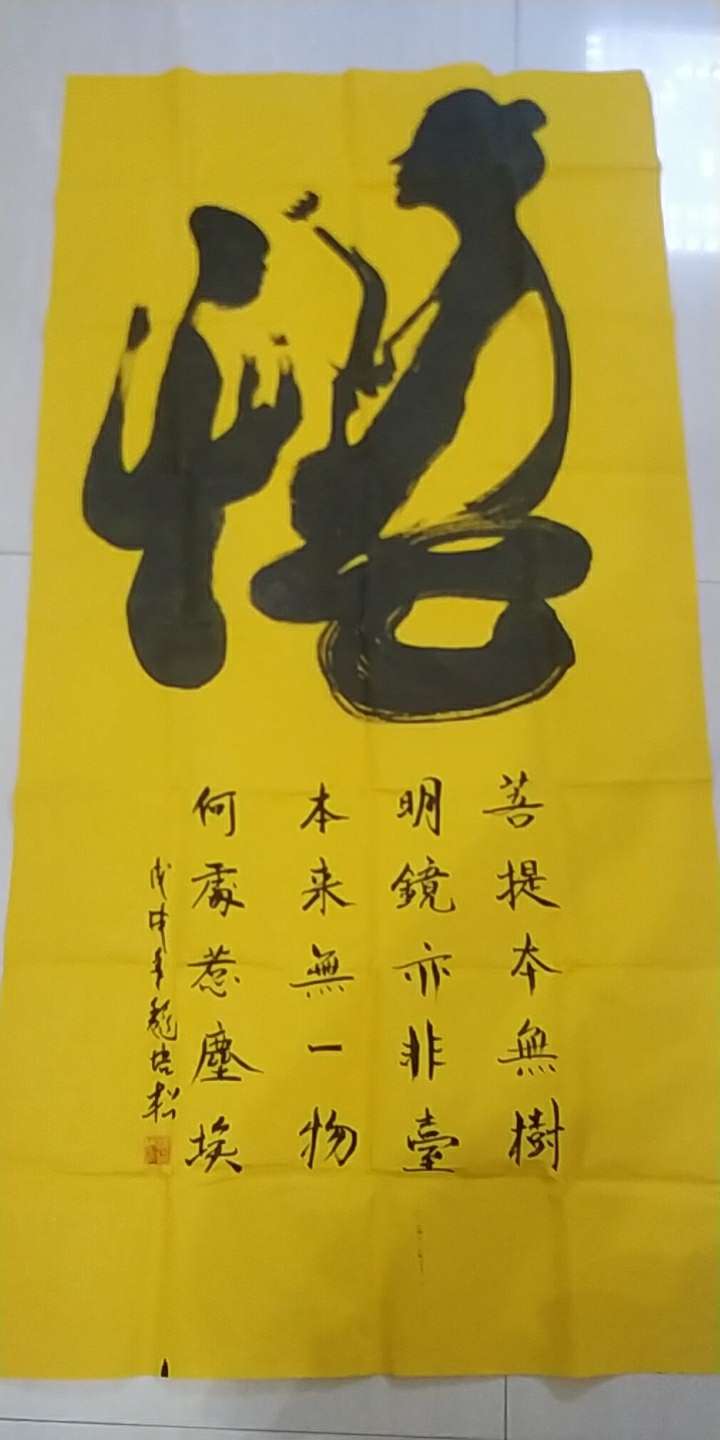 悟
菩提本無樹
明鏡亦非臺
本来無一物
何處惹塵埃
培松